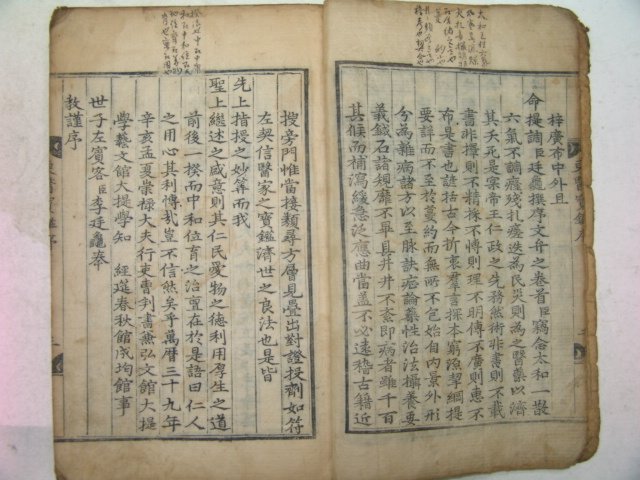 梓廣布中外且
命提調臣廷龜撰序文弁之卷首臣竊念太和一散
六氣不調癃殘扎瘥迭為民災則為之醫藥以濟
其夭死是宲帝王仁政之先務然術非書則不載
書非擇則不精採不博則理不明傳不廣則惠不
布是書也該括古今折衷羣言探本窮源挈綱提
要詳而不至於蔓約而無所不包始自內景外形
分為雜病諸方以至脉訣症論藥性治法攝養要
義鍼石諸規靡不畢具井井不紊即病者雖千百
其候而補瀉緩急泛應曲當盖不必遠稽古籍近
搜旁門惟當接類尋方層見疊出對證投劑如符
左契信醫家之寶鑑濟世之良法也是皆
先上指授之妙筭而我
聖上継述之盛意則其仁民愛物之德利用厚生之道
前後一揆而中和位育之治亶在於是語曰仁人
之用心其利博哉豈不信然矣乎萬曆三十九年
辛亥孟夏崇禄大夫行吏曹判書兼弘文館大提
學藝文館大提學知 經筵春秋館成均館事
世子左賓客臣李廷龜奉
敎謹序